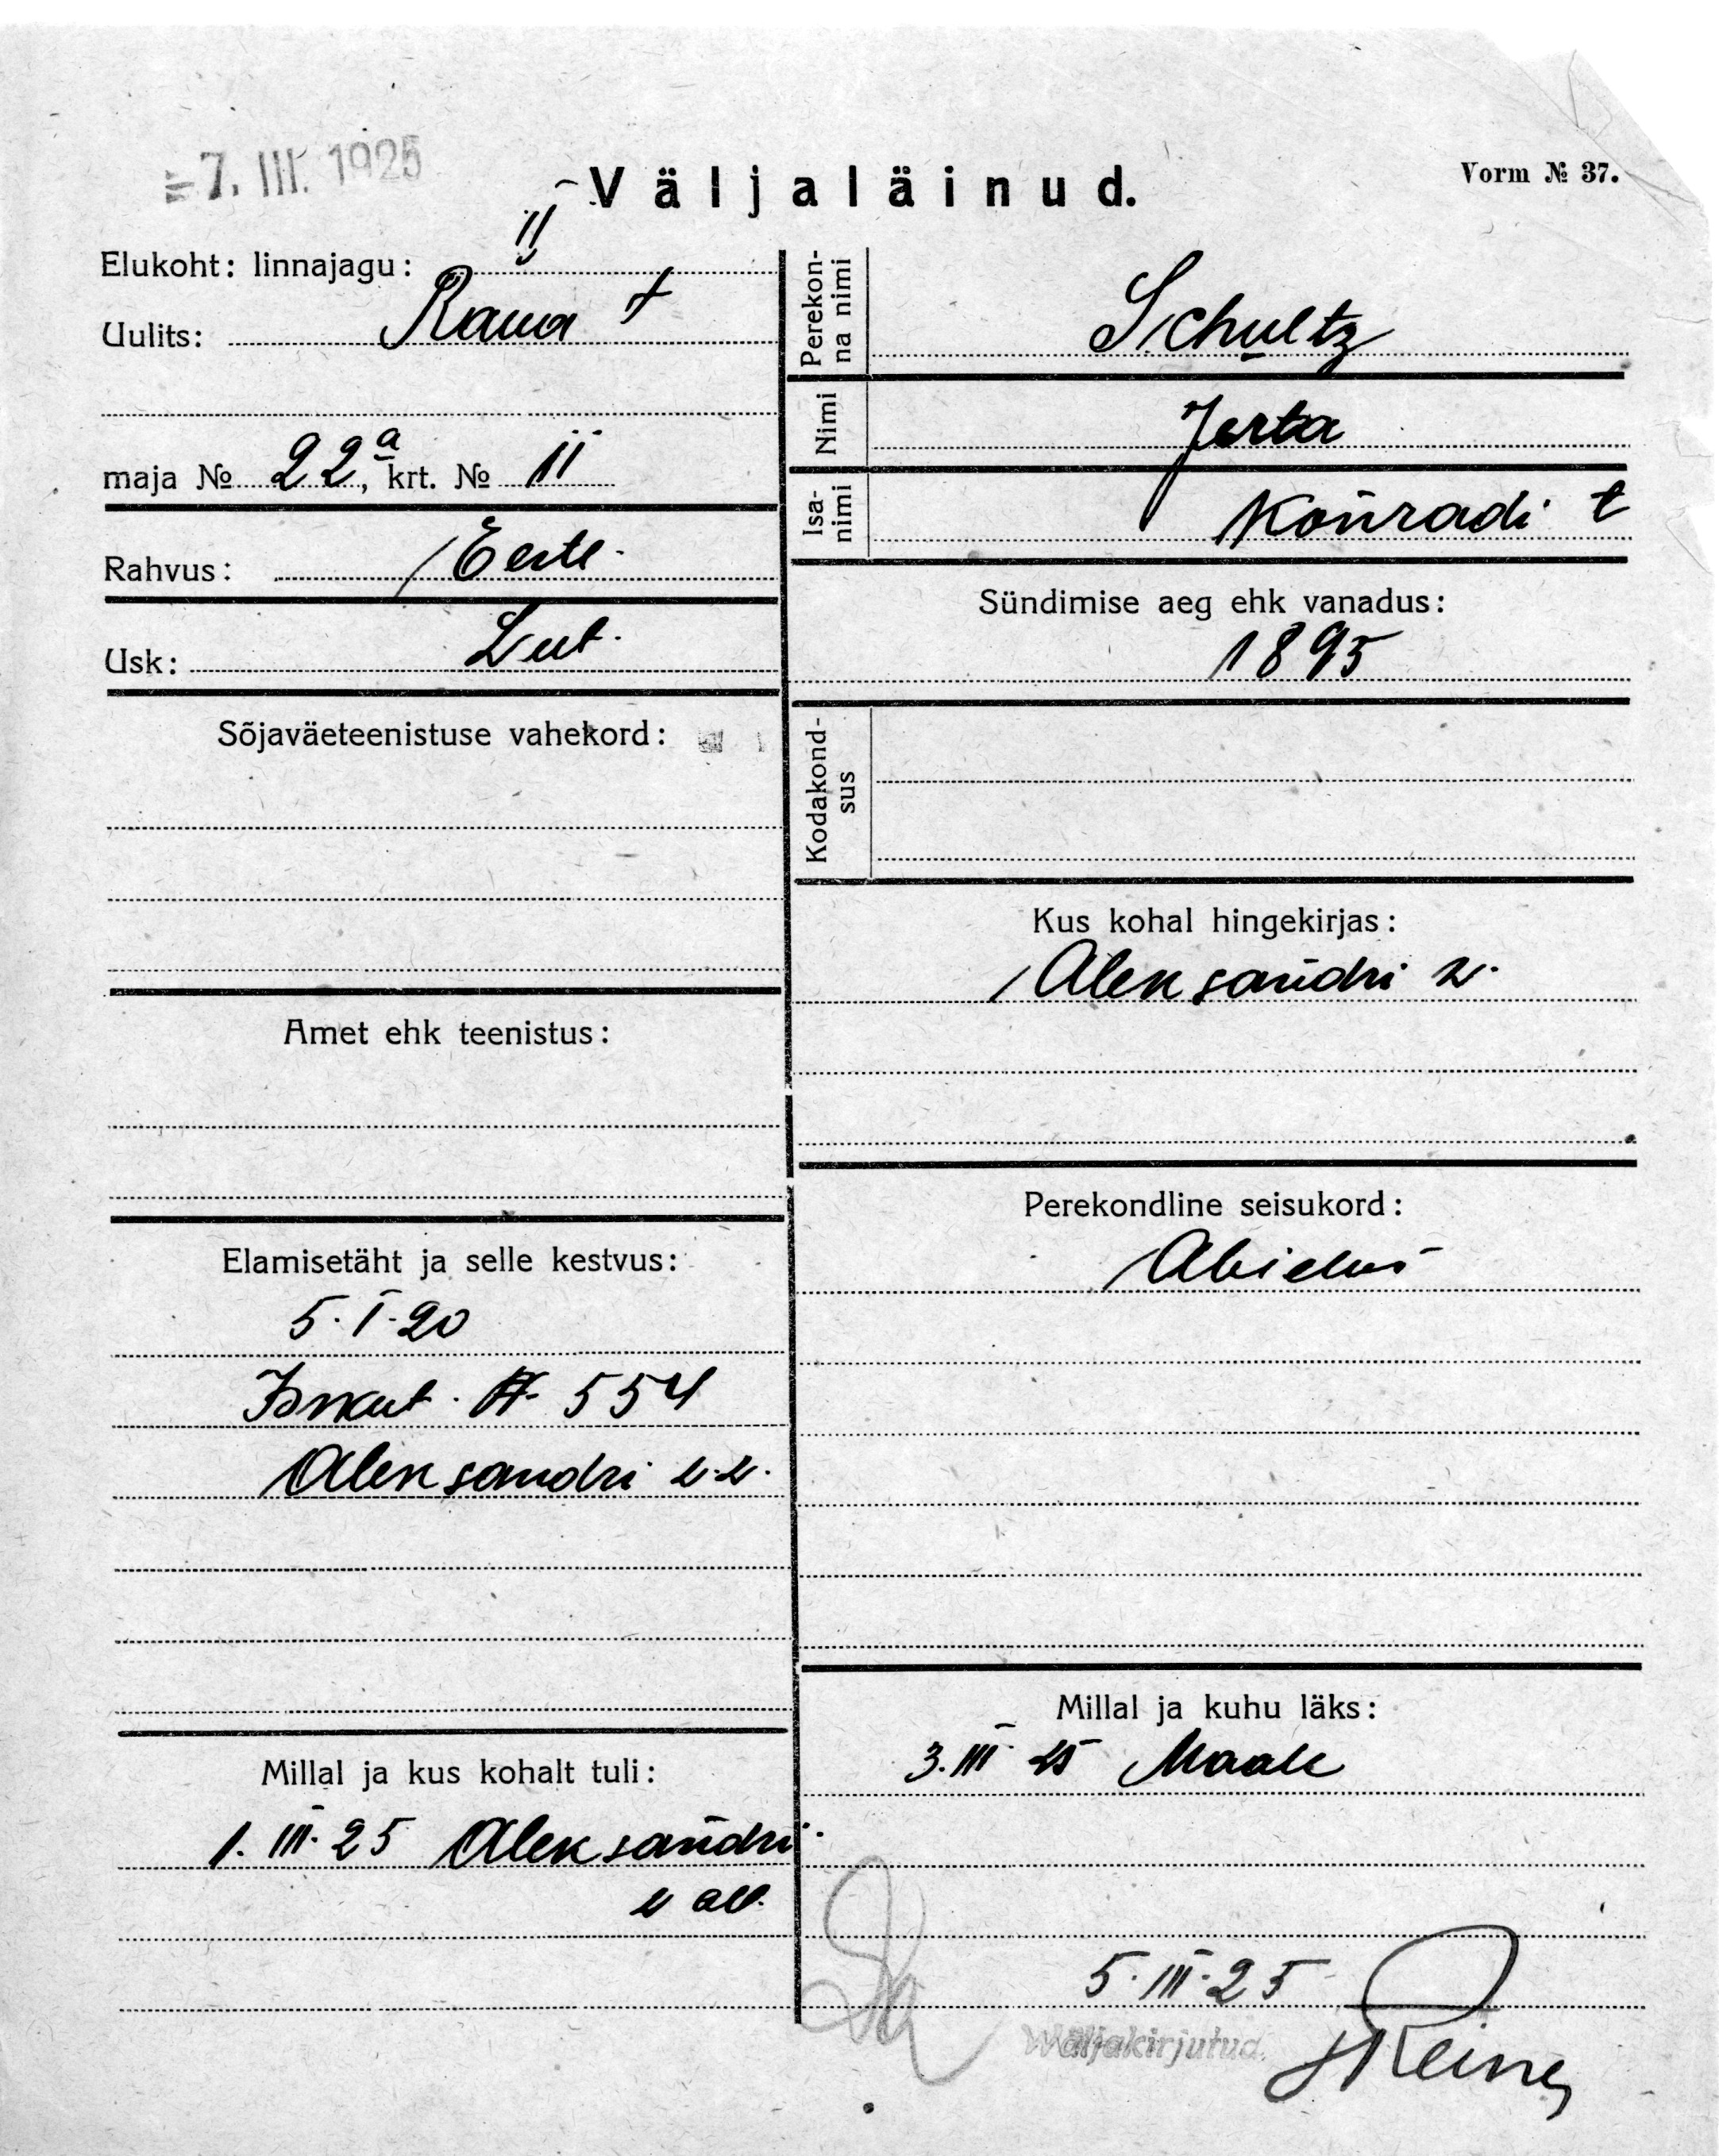 - 7. III. 1925
Väljaläinud.
Vorm № 37.
Elukoht: linnajagu: II
Uulits: Raua t
maja № 22a, krt. № 11
Rahvus: Eesti
Usk: Lut.
Sõjaväeteenistuse vahekord:
Amet ehk teenistus:
Elamisetäht ja selle kestvus:
5. I. 20
Isikut. A 554
Aleksandri v.v.
Millal ja kus kohalt tuli:
1. III. 25 Aleksandri
vall.
Perekonna nimi Schultz
Nimi Jerta
Isanimi Konradi t
Sündimise aeg ehk vanadus:
1895
Kodakondsus
Kus kohal hingekirjas:
Aleksandri v.
Perekondline seisukord:
Abielus
Millal ja kuhu läks:
3. III 25 Maale
5. III. 25
Wäljakirjutud.